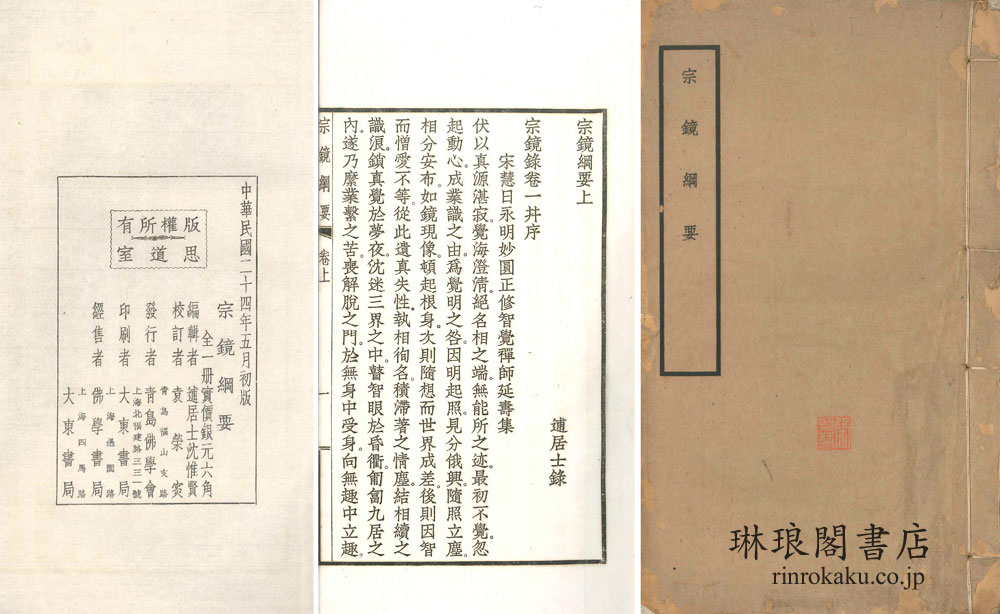 宗鏡綱要
琳琅閣書店
rinrokaku.co.jp
宗鏡綱要上
逋居士錄
宗鏡錄卷一幷序
宋慧日永明妙圓正修智覺禪師延壽集
伏以真源湛寂。覺海澄清。絕名相之端。無能所之迹。最初不覺。忽
起動心。成業識之由。爲覺明之咎。因明起照。見分俄興。隨照立塵。
相分安布。如鏡現像。頓起根身。次則隨想而世界成差。後則因智
而憎愛不等。從此遺真失性。執相徇名。積滯著之情塵。結相續之
識浪。鎖真覺於夢夜。沈迷三界之中。瞽智眼於昏衢。匍匐九居之
內。遂乃縻業繫之苦。喪解脫之門。於無身中受身。向無趣中立趣。
宗鏡綱要 卷上 一
中華民國二十四年五月初版
版權所有
思道室
宗鏡綱要
全一册實價銀元六角
編輯者 逋居士沈惟賢
校訂者 袁榮叜
青島福山支路
發行者 青島佛學會
上海北福建路三三一號
印刷者 大東書局
上海愚園路
經售者 佛學書局
上海四馬路
大東書局